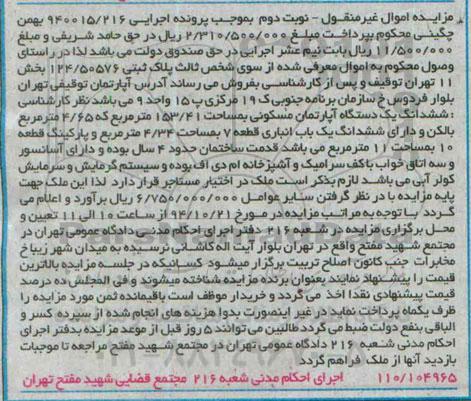 مزایده اموال غیرمنقول - نوبت دوم بموجب پرونده اجرایی ۹۴۰۰۱۵/۲۱۶ بهمن
چگینی محکوم بپرداخت مبلغ ۲/۳۱۰/۵۰۰/۰۰۰ ریال در حق حامد شریفی و مبلغ
۱۱/۵۰۰/۰۰۰ ریال بابت نیم عشر اجرایی در حق صندوق دولت می باشد لذا در راستای
وصول محکوم به اموال معرفی شده از سوی شخص ثالث پلاک ثبتی ۱۲۴/۵۰۵۷۶ بخش
۱۱ تهران توقیف و پس از کارشناسی بفروش می رساند آدرس آپارتمان توقیفی تهران
بلوار فردوس خ سازمان برنامه جنوبی ک ۱۹ مرکزی پ ۱۵ واحد ۹ می باشد نظر کارشناسی
: ششدانگ یک دستگاه آپارتمان مسکونی بمساحت ۱۵۳/۴۱ مترمربع که ۴/۶۵ مترمربع
بالکن و دارای ششدانگ یک باب انباری قطعه ۷ بمساحت ۴/۳۴ مترمربع و پارکینگ قطعه
۱۰ بمساحت ۱۱ مترمربع می باشد قدمت ساختمان حدود ۴ سال بوده و دارای آسانسور
و سه اتاق خواب با کف سرامیک و آشپزخانه ام دی اف بوده و سیستم گرمایش و سرمایش
کولر آبی می باشد لازم بذکر است ملک در اختیار مستاجر قرار دارد لذا این ملک جهت
پایه مزایده با در نظر گرفتن سایر عوامل ۶/۷۵۰/۰۰۰/۰۰۰ ریال برآورد و اعلام می
گردد با توجه به مراتب مزایده در مورخ ۹۴/۱۰/۲۱ از ساعت ۱۰ الی ۱۱ تعیین و
محل برگزاری مزایده در شعبه ۲۱۶ دفتر اجرای احکام مدنی دادگاه عمومی تهران در
مجتمع شهید مفتح واقع در تهران بلوار آیت اله کاشانی نرسیده به میدان شهر زیبا خ
مخابرات جنب کانون اصلاح تربیت برگزار میشود کسانیکه در جلسه مزایده بالاترین
قیمت را پیشنهاد نمایند بعنوان برنده مزایده شناخته میشوند و فی المجلس ده درصد
قیمت پیشنهادی نقدا اخذ می گردد و خریدار موظف است باقیمانده ثمن مورد مزایده را
ظرف یکماه پرداخت نماید در غیر اینصورت بدوا هزینه های انجام شده از سپرده کسر و
الباقی بنفع دولت ضبط می گردد طالبین می توانند ۵ روز قبل از موعد مزایده بدفتر اجرای
احکام مدنی شعبه ۲۱۶ دادگاه عمومی تهران در مجتمع شهید مفتح مراجعه تا موجبات
بازدید آنها از ملک فراهم گردد
۱۱۰/۱۰۴۹۶۵ اجرای احکام مدنی شعبه ۲۱۶ مجتمع قضایی شهید مفتح تهران